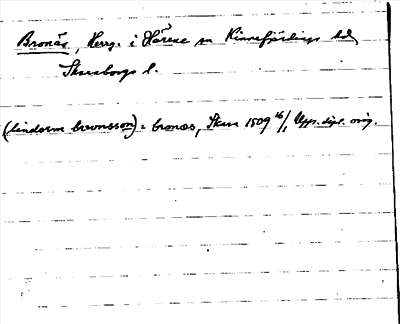 Bronäs, Herrg. i Härene sn Kinnefjärdings hd,
Skaraborgs l.
(lindorm brunsson) i bronæs, Skara 1509 16/1, Upps. dipl. orig.